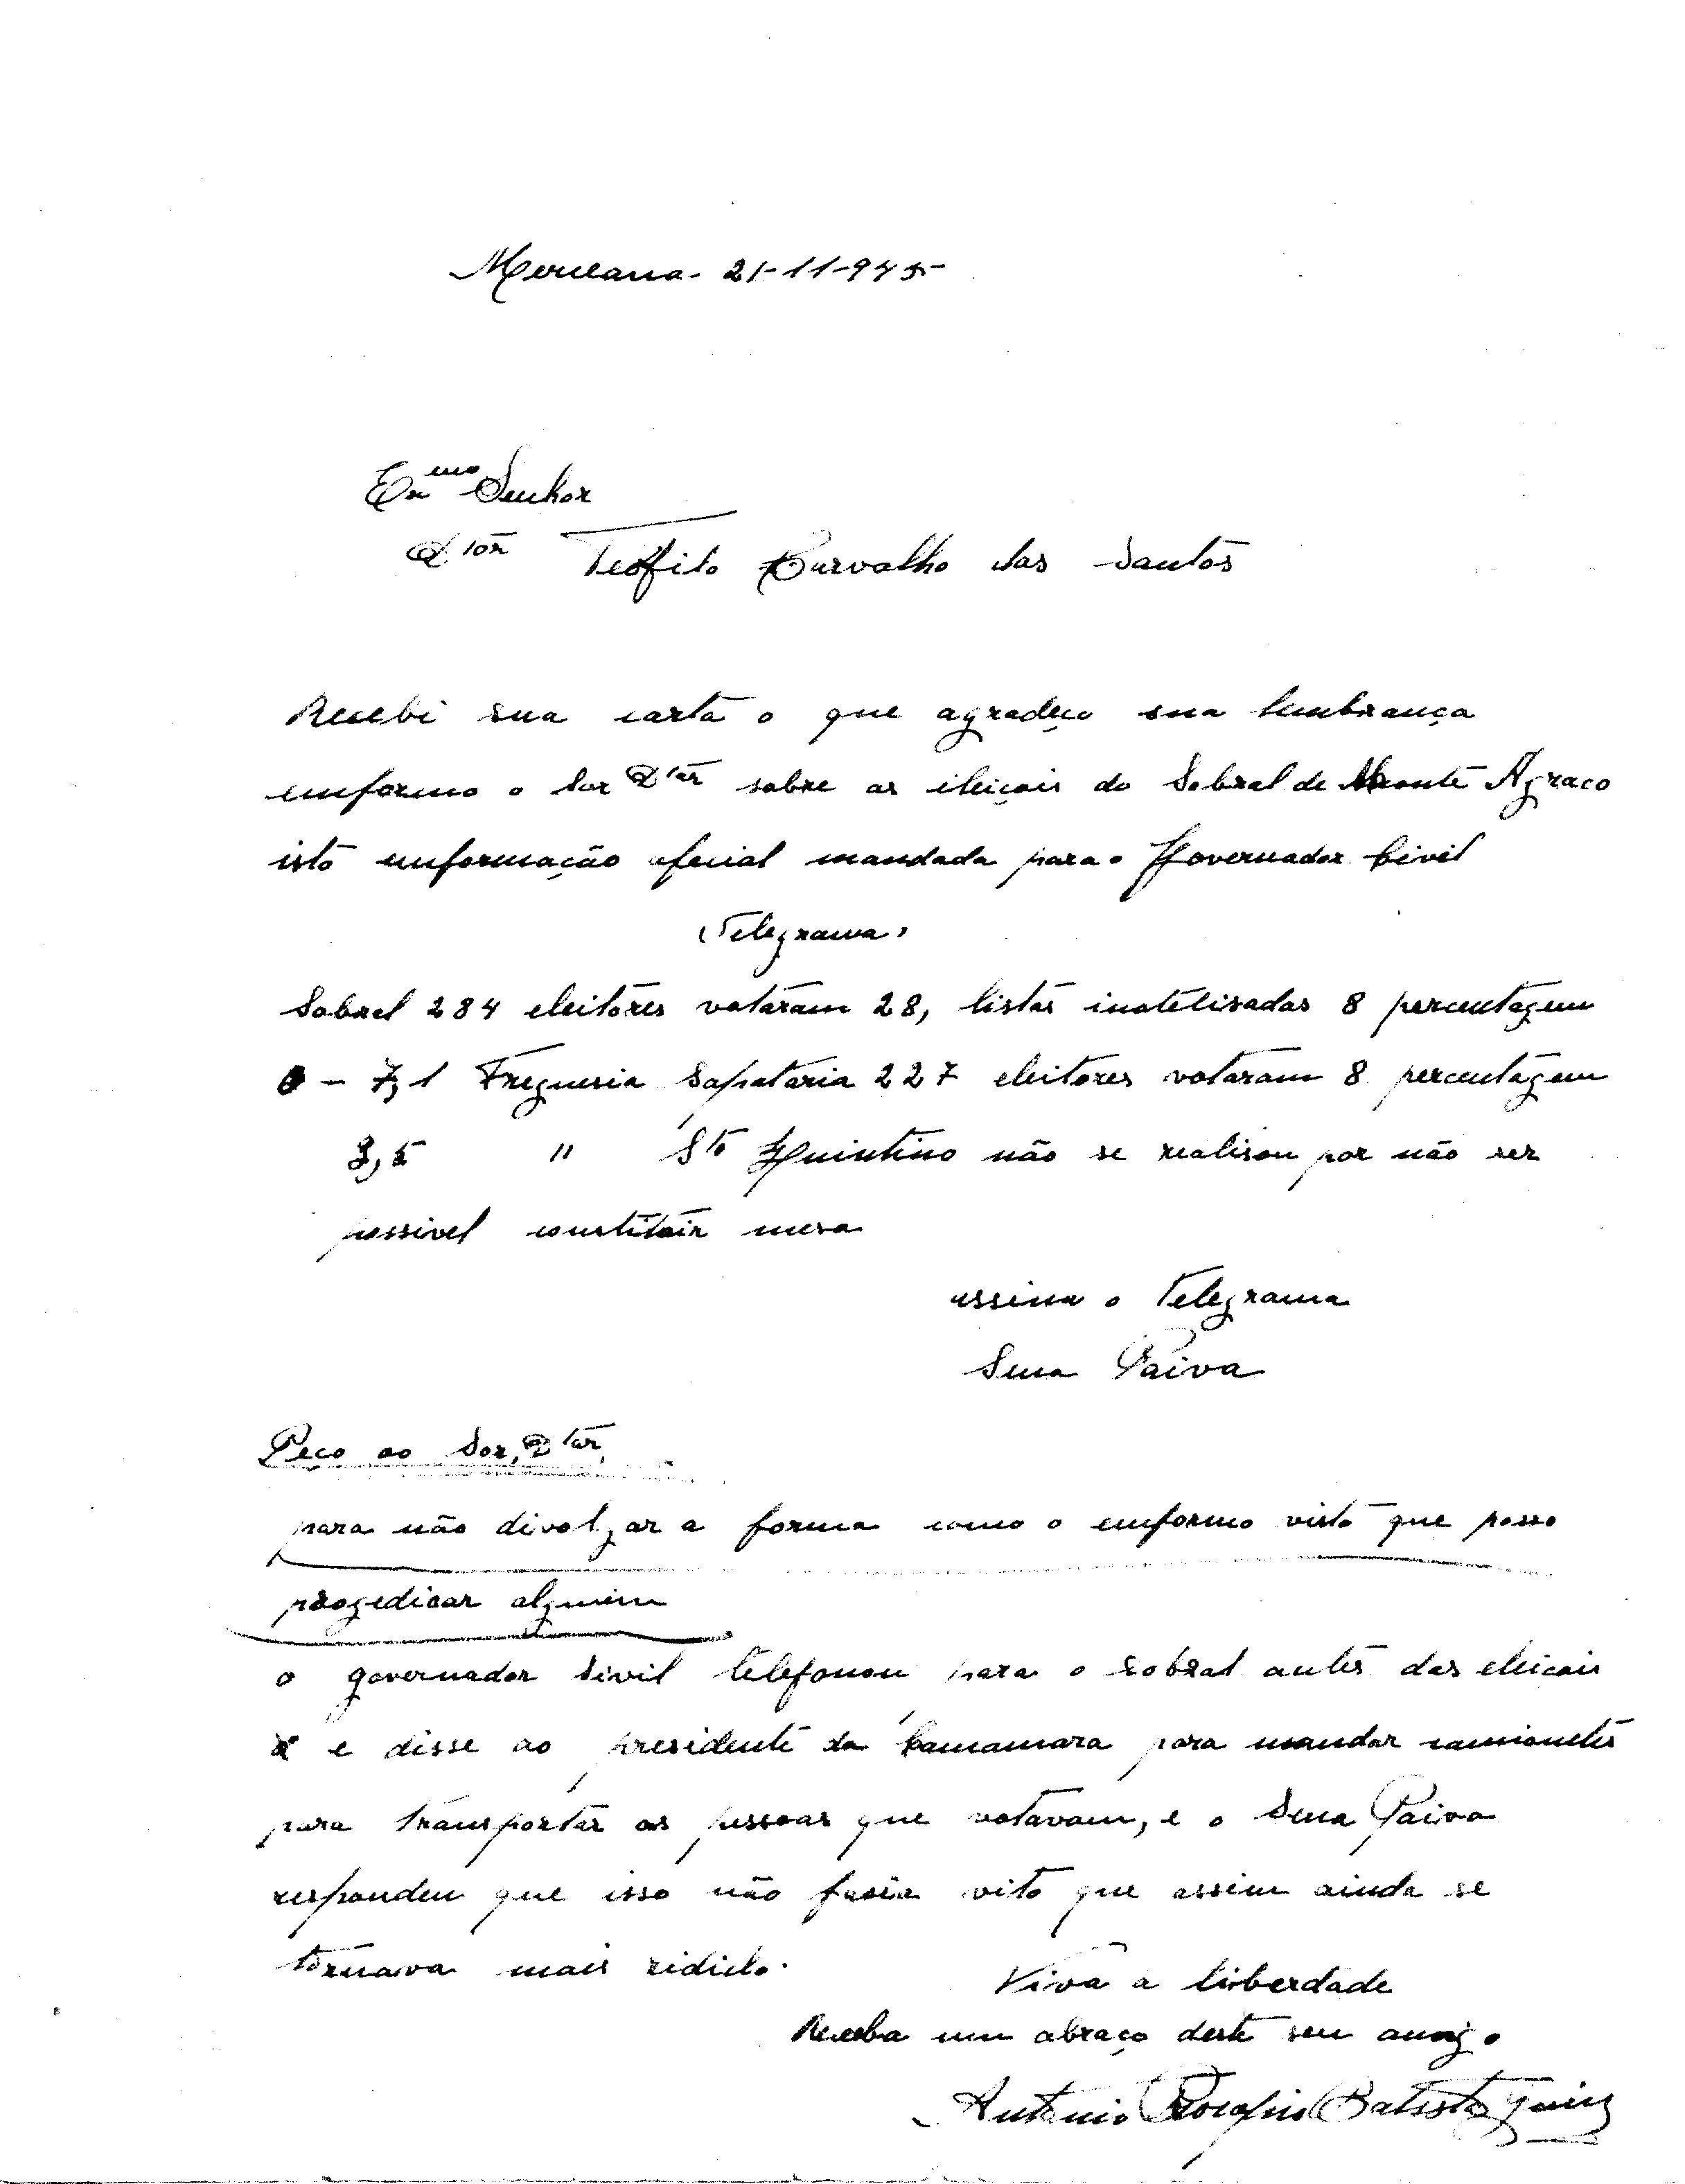 Merceana - 21-11-945-
Exmo Senhor
Dtor Teofilo Carvalho dos Santos
Recebi sua carta o que agradeço sua lembrança
emformo o Sor Dtor sobre as eleiçois do Sobral de Monte Agraço
isto emformação oficial mandada para o Governador Civil
(Telegrama)
Sobral 284 eleitores votaram 28, listas inotelisadas 8 percentagem
- 7,1 Freguesia Sapataria 227 eleitores votaram 8 percentagem
3,5 " Sto Quintino não se realisou por não ser
possivel constituir mesa
assina o Telegrama
Sena Paiva
Peço ao Sor, Dtor,
para não divolgar a forma como o emformo visto que posso
progedicar alguem
o governador Sivil telefonou para o Sobral antes das eleiçois
e disse ao presidente da Camamara para mandar camionetes
para transportar as pessoas que votavam, e o Sena Paiva
respondeu que isso não fasia vito que assim ainda se
tornava mais ridiclo.
Viva a liberdade
Receba um abraço deste seu amigo
Antonio Batista